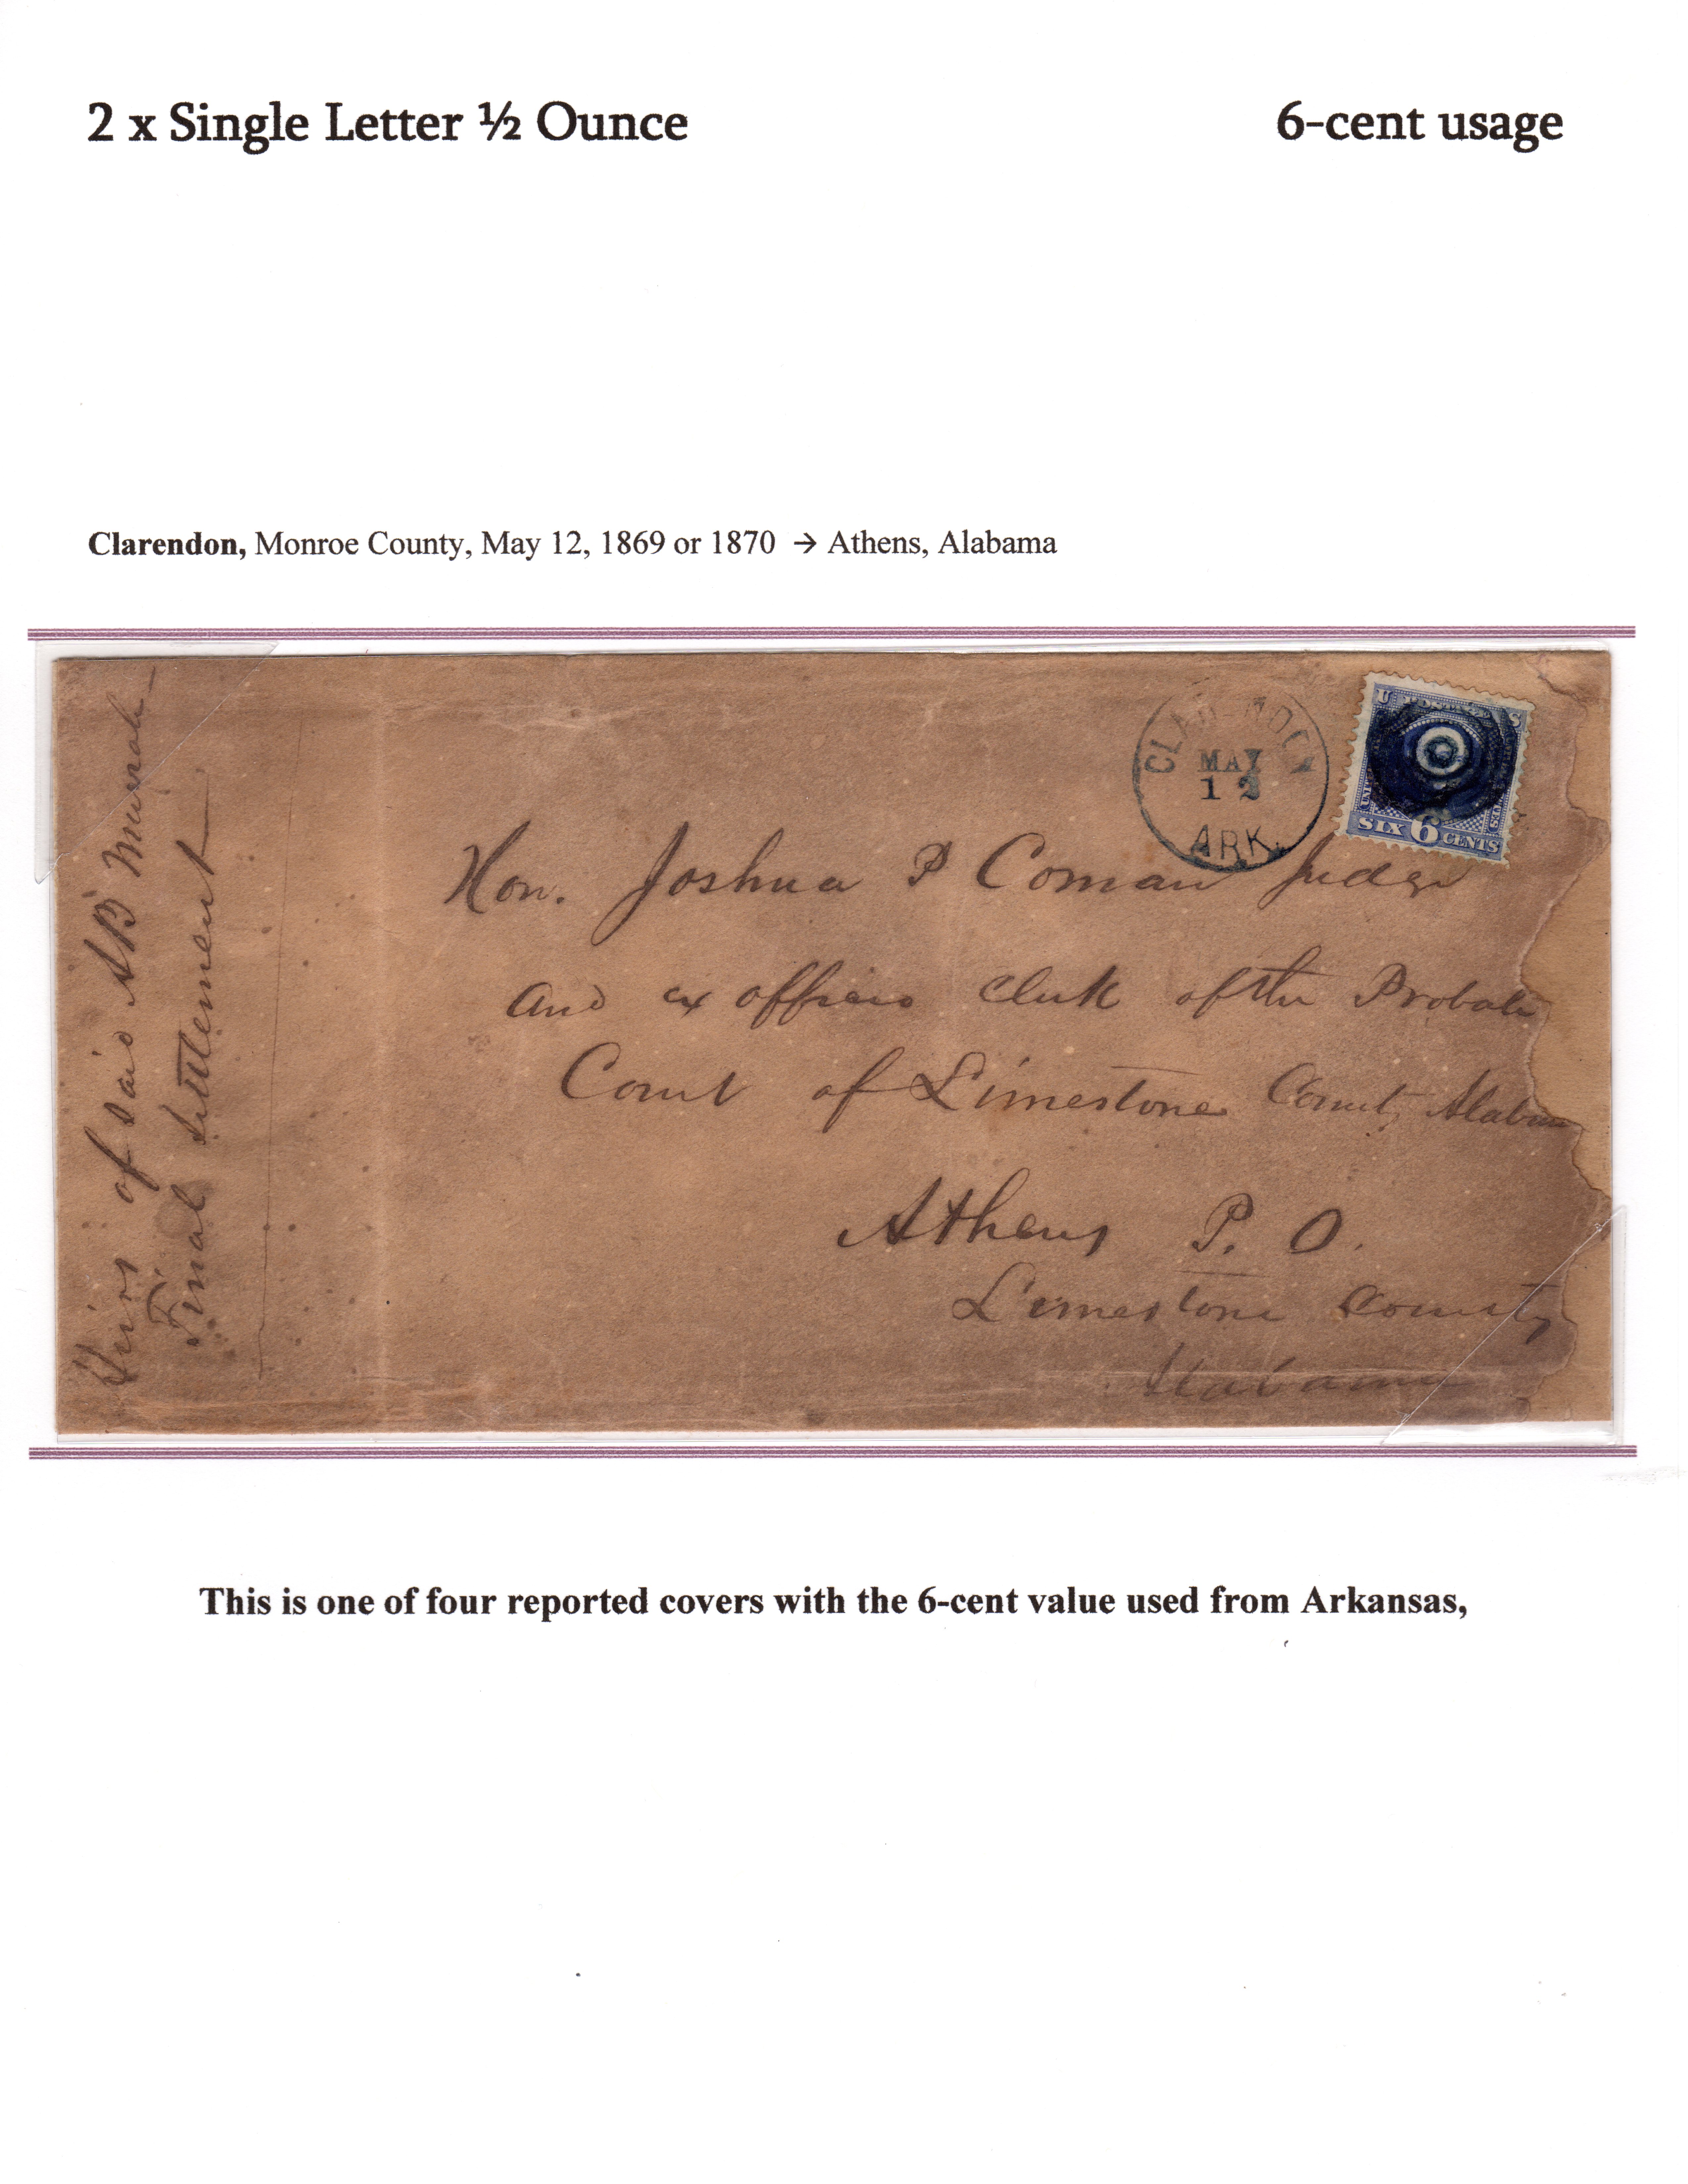 2 x Single Letter ½ Ounce 6-cent usage
Clarendon, Monroe County, May 12, 1869 or 1870 → Athens, Alabama
Heirs of said AB
Final Settlement
MAY
12
ARK.
U S
SIX 6 CENTS
Hon. Joshua P Coman Judge
and ex officio clerk of the Probate
Court of Limestone County, Alabama
Athens P. O.
Limestone County
Alabama
This is one of four reported covers with the 6-cent value used from Arkansas,